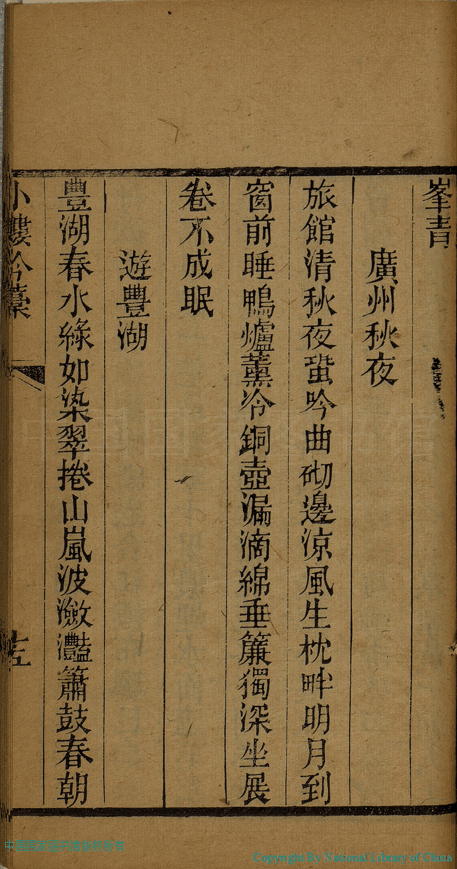 峯青
廣州秋夜
旅館清秋夜蛩吟曲砌邊涼風生枕畔明月到
窗前睡鴨爐薰冷銅壺漏滴綿垂簾獨深坐展
卷不成眠
遊豐湖
豐湖春水綠如染翠捲山嵐波瀲灩簫鼓春朝
Copyright By National Library of China